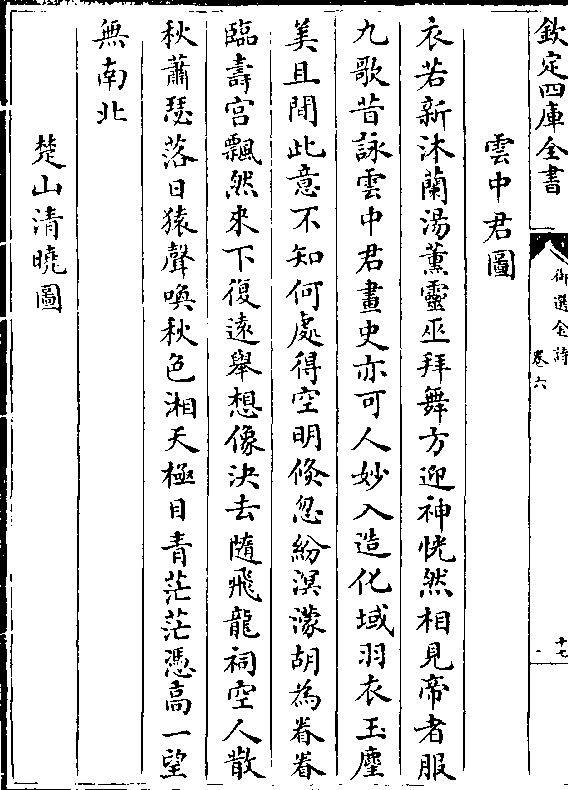 欽定四庫全書
御選金詩
卷六
十七
雲中君圖
衣若新沐蘭湯薰靈巫拜舞方迎神恍然相見帝者服
九歌昔詠雲中君畫史亦可人妙入造化域羽衣玉麈
美且閒此意不知何處得空明倐忽紛溟濛胡為眷眷
臨壽宫飄然來下復遠舉想像決去隨飛龍祠空人散
秋蕭瑟落日猿聲喚秋色湘天極目青茫茫憑高一望
無南北
楚山清曉圖